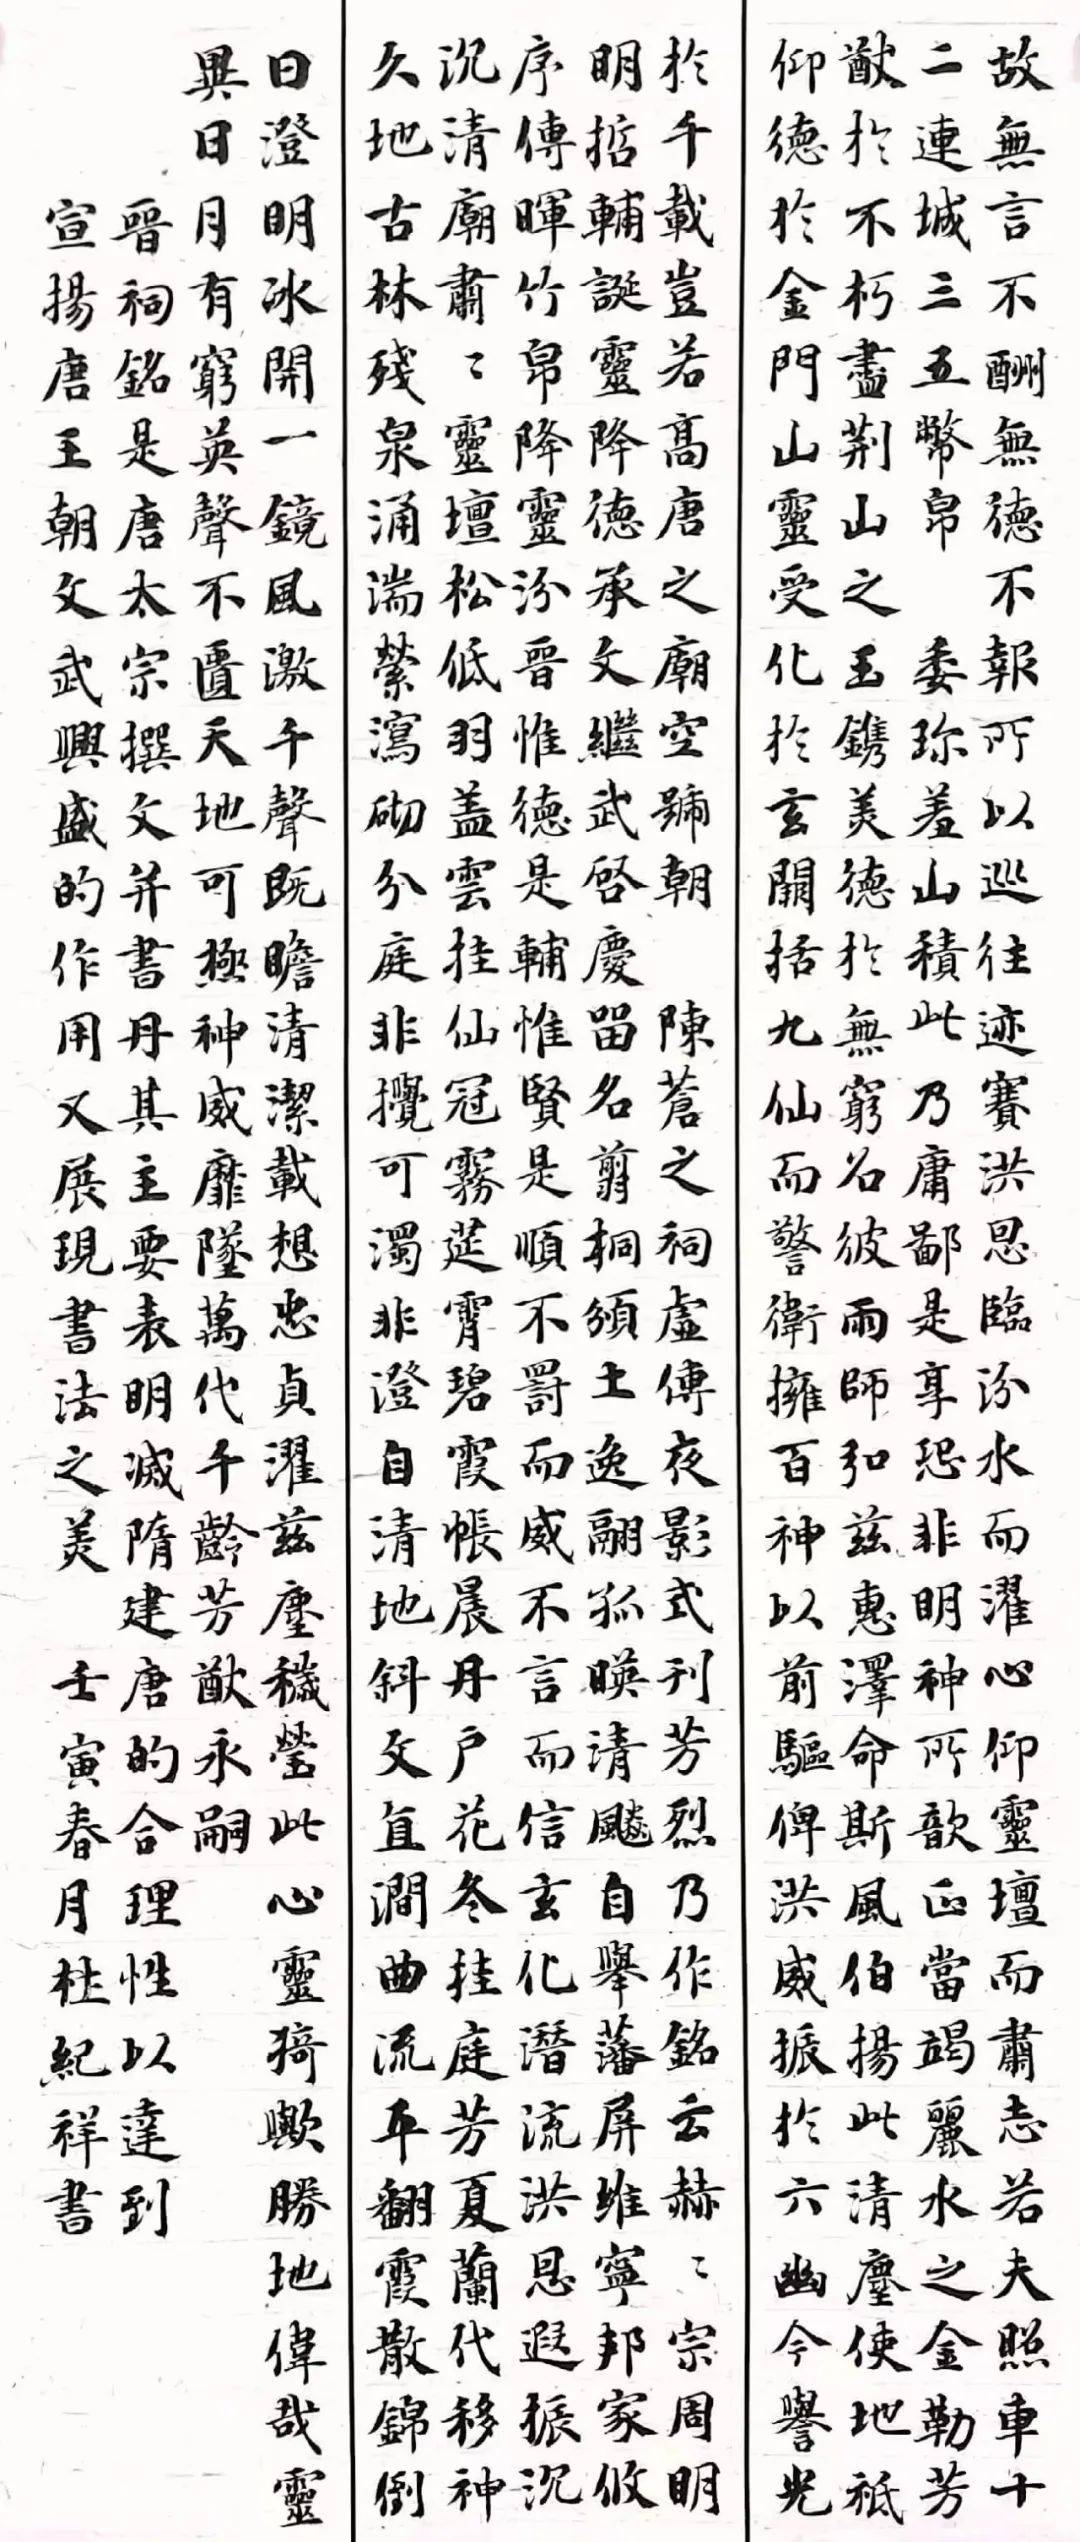 故無言不酬無德不報所以巡往迹賽洪恩臨汾水而濯心仰靈壇而肅志若夫照車十
二連城三五幣帛委珍羞山積此乃庸鄙是享恐非明神所歆正當竭麗水之金勒芳
猷於不朽盡荊山之玉鐫美德於無窮名彼雨師弘茲惠澤命斯風伯揚此清塵使地祇
仰德於金門山靈受化於玄關括九仙而警衛擁百神以前驅俾洪威振於六幽令譽光
於千載豈若高唐之廟空號朝陳蒼之祠虛傳夜影式刊芳烈乃作銘云赫〻宗周明
明哲輔誕靈降德承文繼武啓慶留名翦桐頒土逸翮孤暎清飈自舉藩屏維寧邦家攸
序傳暉竹帛降靈汾晉惟德是輔惟賢是順不罸而威不言而信玄化潛流洪恩遐振沉
沉清廟肅〻靈壇松低羽蓋雲挂仙冠霧筵霄碧霞帳晨丹戶花冬挂庭芳夏蘭代移神
久地古林殘泉涌湍縈瀉砌分庭非攪可濁非澄自清地斜文直澗曲流平翻霞散錦倒
日澄明冰開一鏡風激千聲既瞻清潔載想忠貞濯茲塵穢瑩此心靈猗歟勝地偉哉靈
異日月有窮英聲不匱天地可極神威靡墜萬代千齡芳猷永嗣
晉祠銘是唐太宗撰文并書丹其主要表明滅隋建唐的合理性以達到
宣揚唐王朝文武興盛的作用又展現書法之美 壬寅春月杜紀祥書